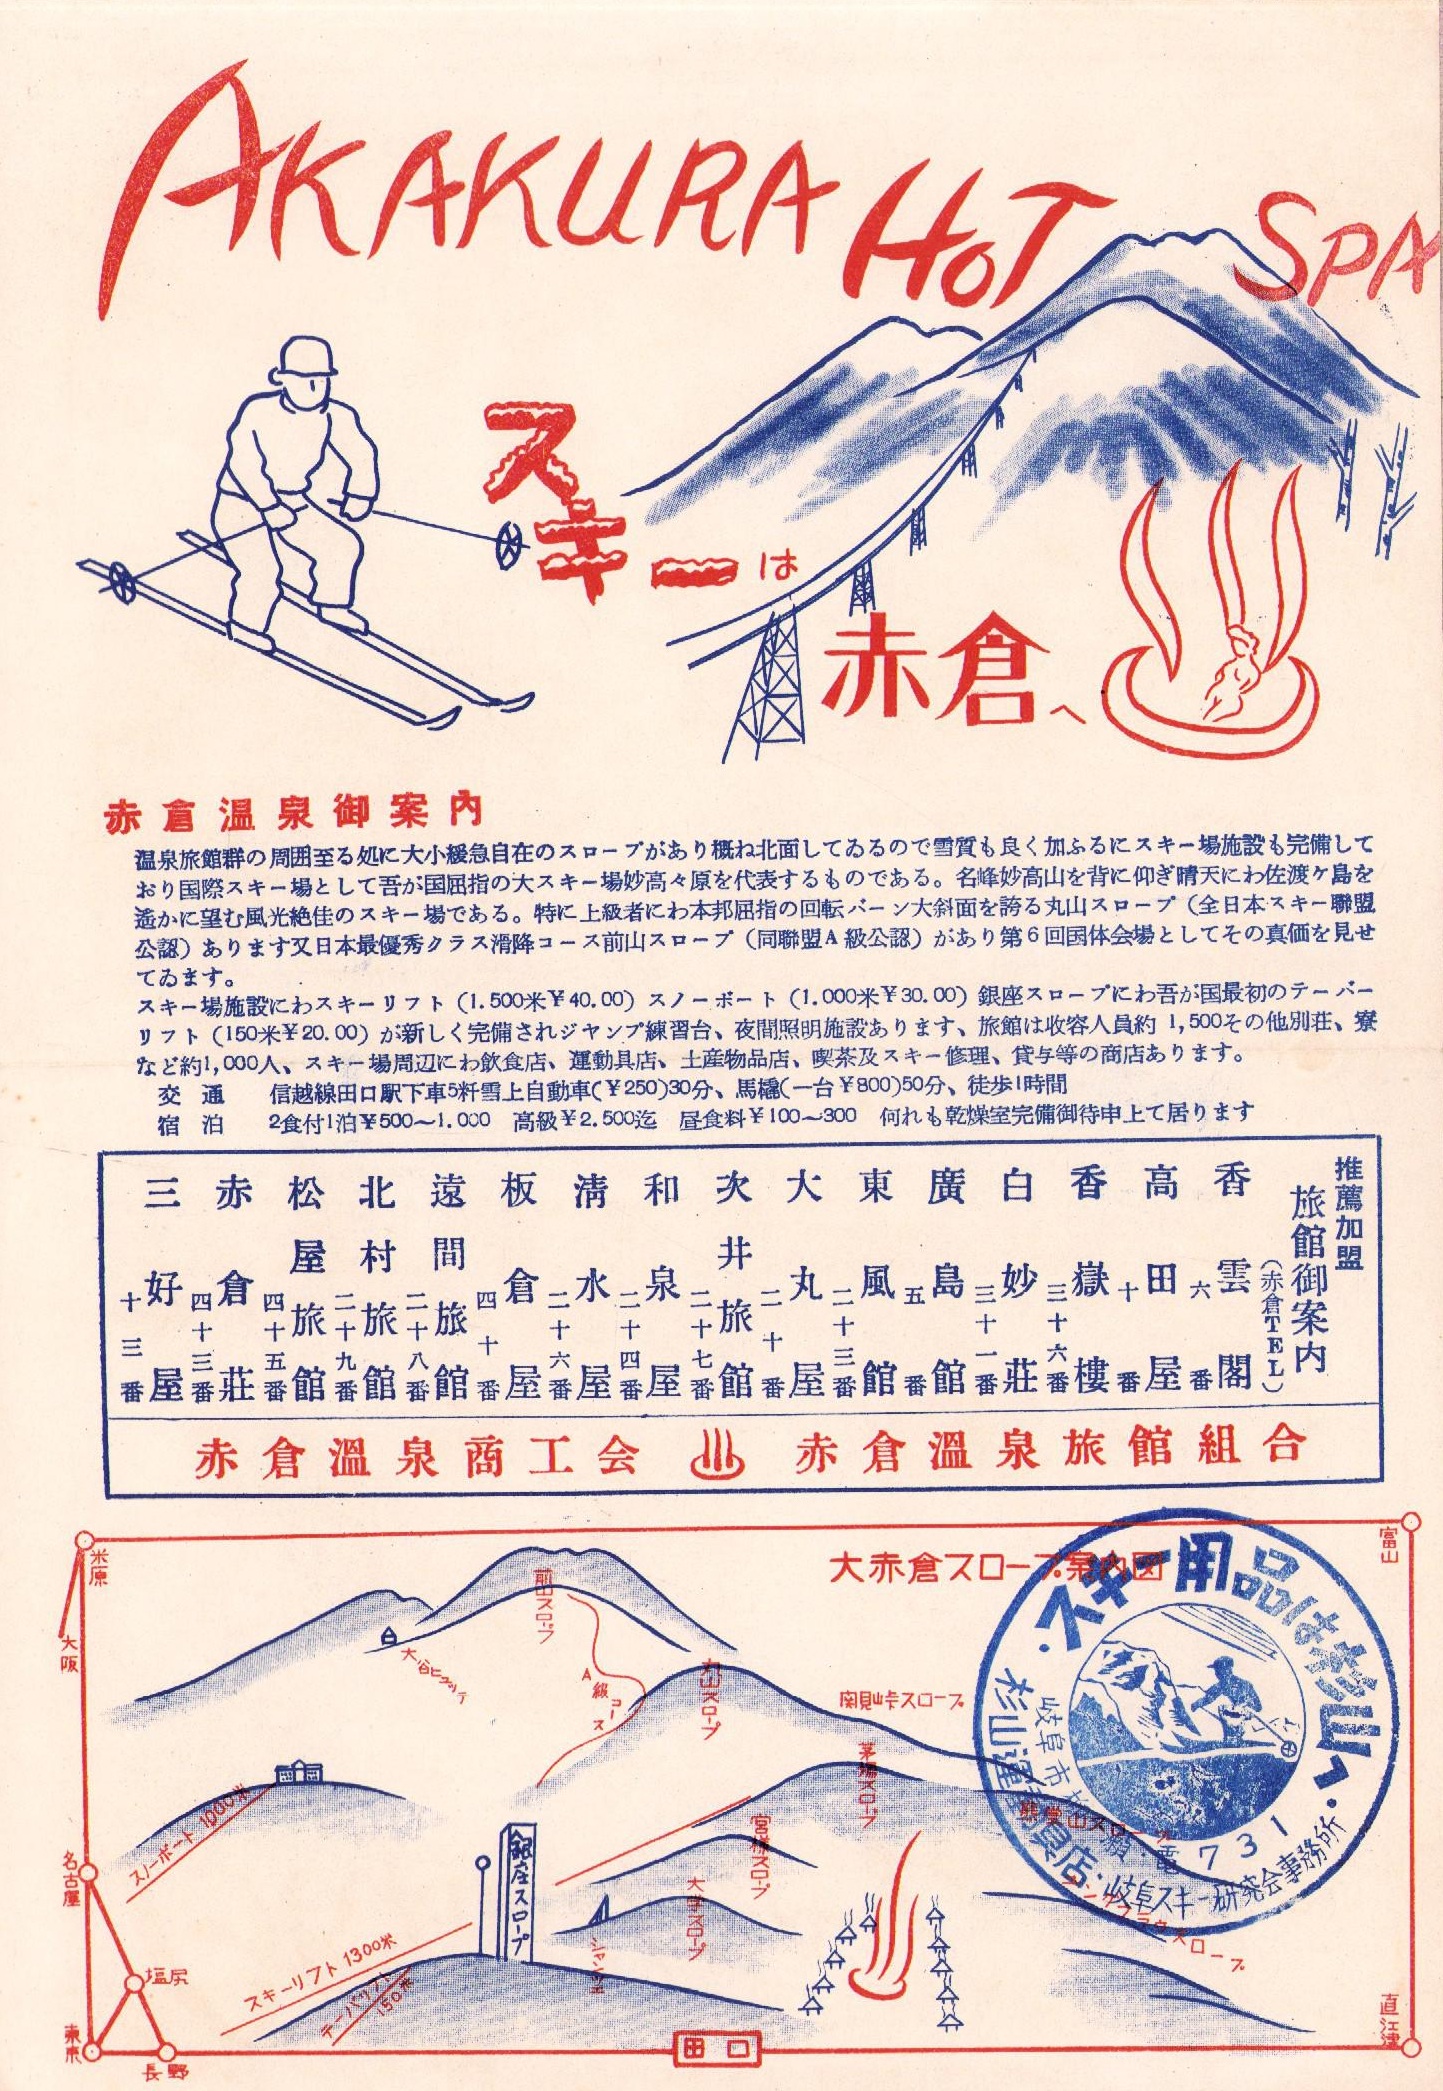 AKAKURA HOT SPA
スキーは
赤倉へ
赤倉温泉御案内
温泉旅館群の周囲至る処に大小緩急自在のスロープがあり概ね北面してゐるので雪質も良く加ふるにスキー場施設も完備して
おり国際スキー場として吾が国屈指の大スキー場妙高々原を代表するものである。名峰妙高山を背に仰ぎ晴天にわ佐渡ヶ島を
遥かに望む風光絶佳のスキー場である。特に上級者にわ本邦屈指の回転バーン大斜面を誇る丸山スロープ（全日本スキー聯盟
公認）あります又日本最優秀クラス滑降コース前山スロープ（同聯盟A級公認）があり第6回国体会場としてその真価を見せ
てゐます。
スキー場施設にわスキーリフト（1.500米￥40.00）スノーボート（1.000米￥30.00）銀座スロープにわ吾が国最初のテーバー
リフト（150米￥20.00）が新しく完備されジヤンプ練習台、夜間照明施設あります、旅館は収容人員約 1,500その他別荘、寮
など約1,000人、スキー場周辺にわ飲食店、運動具店、土産物品店、喫茶及スキー修理、貸与等の商店あります。
交通 信越線田口駅下車5粁雪上自動車(￥250)30分、馬橇(一台￥800)50分、徒歩1時間
宿泊 2食付1泊￥500～1.000 高級￥2.500迄 昼食料￥100～300 何れも乾燥室完備御待申上て居ります
推薦加盟
旅館御案内
（赤倉TEL）
香雲閣 六番
高田屋 十番
香嶽樓 三十六番
白妙荘 三十一番
廣島館 五番
東風館 二十三番
大丸屋 二十番
次井旅館 二十七番
和泉屋 二十四番
清水屋 二十六番
板倉屋 四十番
遠間旅館 二十八番
北村旅館 二十九番
松屋旅館 四十五番
赤倉荘 四十三番
三好屋 十三番
赤倉温泉商工会 ♨ 赤倉温泉旅館組合
大赤倉スロープ案内図
米原
大阪
名古屋
塩尻
東京
長野
田口
直江津
富山
前山スロープ
大谷ヒュッテ
A級コース
丸山スロープ
関見峠スロープ
茅場スロープ
宮様スロープ
大学スロープ
スノーボート 1000米
銀座スロープ
スキーリフト 1300米
テーバリフト 150米
スキー用品は杉山へ
杉山運動具店
岐阜スキー研究会事務所
電731